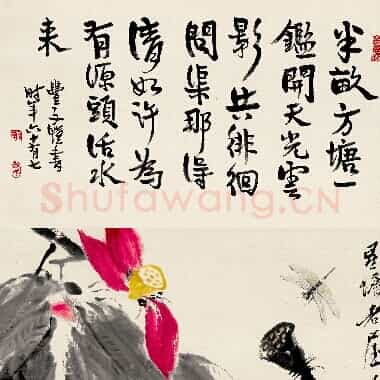 半畝方塘一
鑑開天光雲
影共徘徊
問渠那得
清如許為
有源頭活水
来
豐子愷書
时年六十有七
Shufawang.CN
星塘老